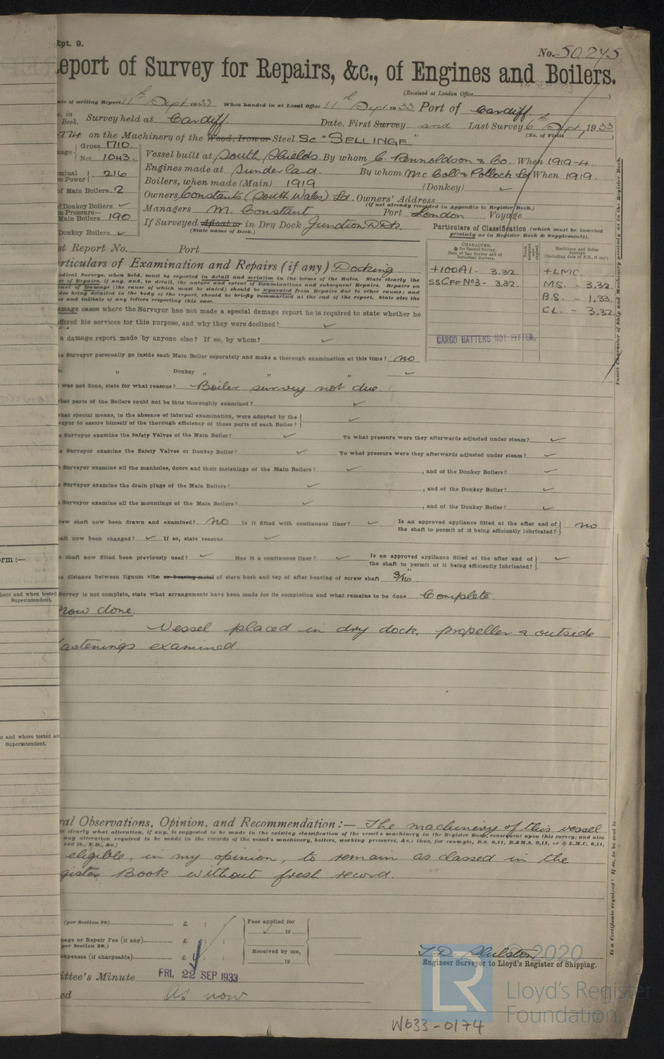 Rpt. 9.
No. 50245
Report of Survey for Repairs, &c., of Engines and Boilers.
(Received at London Office
Date of writing Report 11th Sept 1933 When handed in at Local Office 11th Sept 1933 Port of Cardiff
Survey held at Cardiff Date, First Survey and Last Survey 6th Sept, 1933
(No. of Visits
on the Machinery of the Wood, Iron or Steel Sc "SELLINGE"
Gross 1710
Net 1043
Vessel built at South Shields By whom C. Rennoldson & Co. When 1919-4
216
Engines made at Sunderland By whom Mc Coll & Pollock Ld When 1919
of Main Boilers 2
Boilers, when made (Main) 1919 (Donkey) ✓
of Donkey Boilers ✓
Owners Constants (South Wales) Ld. Owners' Address
(if not already recorded in Appendix to Register Book.)
Main Boilers 190
Managers M. Constant Port London Voyage
Donkey Boilers ✓
If Surveyed Afloat or in Dry Dock Junction D.Dk.
(State name of Dock.)
Particulars of Classification (which must be inserted
precisely as in Register Book & Supplements).
st Report No. Port
+100A1- 3.32 +LMC.
SSCff No3- 3.32 M.S. - 3.32.
B.S. - 1,33.
CL. - 3.32
CARGO BATTENS NOT FITTED.
Particulars of Examination and Repairs (if any) Docking
damage cases where the Surveyor has not made a special damage report he is required to state whether he
offered his services for this purpose, and why they were declined? ✓
a damage report made by anyone else? If so, by whom? ✓
the Surveyor personally go inside each Main Boiler separately and make a thorough examination at this time? no
" Donkey " " ✓
was not done, state for what reasons? Boiler survey not due
what parts of the Boilers could not be thus thoroughly examined? ✓
what special means, in the absence of internal examination, were adopted by the
Surveyor to assure himself of the thorough efficiency of those parts of each Boiler? ✓
the Surveyor examine the Safety Valves of the Main Boiler? ✓ To what pressure were they afterwards adjusted under steam? ✓
the Surveyor examine the Safety Valves of Donkey Boiler? ✓ To what pressure were they afterwards adjusted under steam? ✓
the Surveyor examine all the manholes, doors and their fastenings of the Main Boilers? ✓ , and of the Donkey Boilers? ✓
the Surveyor examine the drain plugs of the Main Boilers? ✓ , and of the Donkey Boilers? ✓
the Surveyor examine all the mountings of the Main Boilers? ✓ , and of the Donkey Boilers? ✓
screw shaft now been drawn and examined? no Is it fitted with continuous liner? ✓ Is an approved appliance fitted at the after end of
the shaft to permit of it being efficiently lubricated? no
shaft now been changed? ✓ If so, state reasons ✓
shaft now fitted been previously used? ✓ Has it a continuous liner? ✓ Is an approved appliance fitted at the after end of
the shaft to permit of it being efficiently lubricated? ✓
the distance between lignum vitæ or bearing metal of stern bush and top of after bearing of screw shaft 3/16
Survey is not complete, state what arrangements have been made for its completion and what remains to be done Complete.
now done.
Vessel placed in dry dock, propeller & outside
fastenings examined
General Observations, Opinion, and Recommendation:— The machinery of this vessel
eligible, in my opinion, to remain as classed in the
Register Book without fresh record.
(per Section 29) £ : : Fees applied for
19
Damage or Repair Fee (if any) £ : :
(per Section 29.)
Received by me,
Expenses (if chargeable) £ : :
19
Engineer Surveyor to Lloyd's Register of Shipping.
Committee's Minute FRI. 22 SEP 1933
As now
© 2020
Lloyd's Register
Foundation
W633-0174